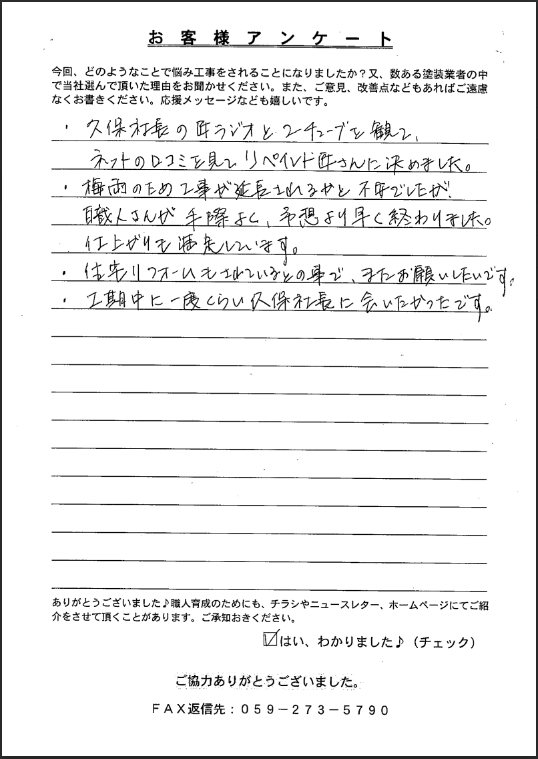 お客様アンケート
今回、どのようなことで悩み工事をされることになりましたか？又、数ある塗装業者の中
で当社選んで頂いた理由をお聞かせください。また、ご意見、改善点などもあればご遠慮
なくお書きください。応援メッセージなども嬉しいです。
・久保社長の匠ラジオとユーチューブを観て、
ネットの口コミを見てリペイント匠さんに決めました。
・梅雨のため工事が延長されるかと不安でしたが、
職人さんが手際よく、予想より早く終わりました。
仕上がりも満足しています。
・住宅リフォームもされているとの事で、またお願いしたいです。
・工期中に一度くらい久保社長に会いたかったです。
ありがとうございました♪職人育成のためにも、チラシやニュースレター、ホームページにてご紹
介をさせて頂くことがあります。ご承知おきください。
☑はい、わかりました♪（チェック）
ご協力ありがとうございました。
ＦＡＸ返信先：０５９－２７３－５７９０